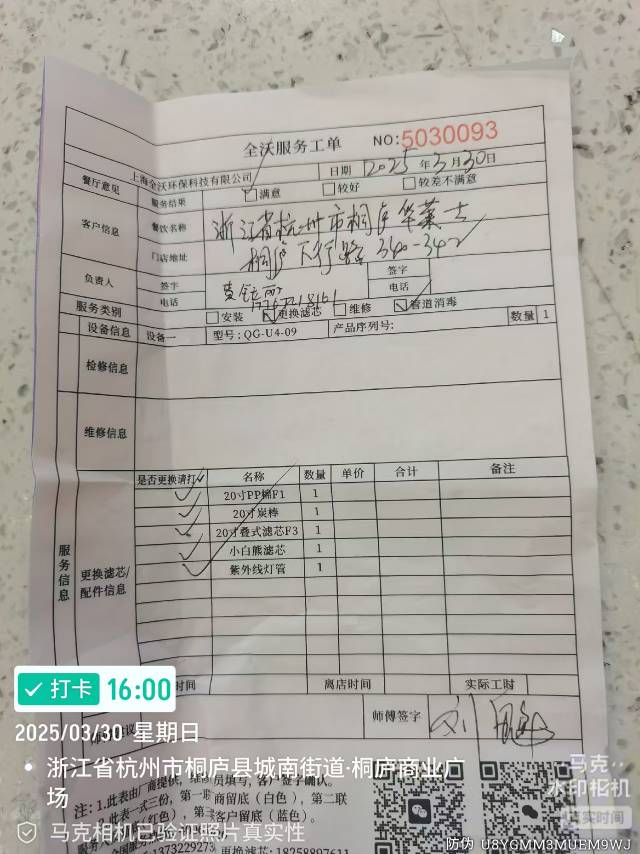 全沃服务工单 NO:5030093
上海全沃环保科技有限公司 日期 2025年3月30日
餐厅意见 服务结果 满意 较好 较差不满意
客户信息 餐饮名称 浙江省杭州市桐庐华莱士
门店地址 桐庐天行路340-342
负责人 签字 签字
电话 电话
服务类别 安装 更换滤芯 维修 管道消毒
设备信息 设备一 型号:QG-U4-09 产品序列号: 数量 1
检修信息
维修信息
服务信息
更换滤芯/配件信息
是否更换请打✓ 名称 数量 单价 合计 备注
✓ 20寸PP棉F1 1
✓ 20寸炭棒 1
✓ 20寸叠式滤芯F3 1
✓ 小白熊滤芯 1
✓ 紫外线灯管 1
时间 离店时间 实际工时
师傅签字
打卡 16:00
2025/03/30 星期日
浙江省杭州市桐庐县城南街道·桐庐商业广场
注:1.此表由厂商提供,
员填写,客户签字确认。
2.此表一式三份,第一联
商留底(白色),第二联
客户留底(蓝色)。
更换滤芯:18258897611
马克相机已验证照片真实性
马克
水印相机
真实时间
防伪 U8YGMM3MUEM9WJ